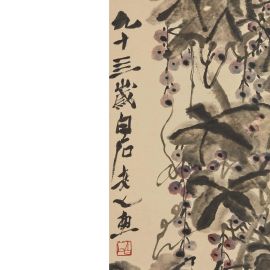 九十三歲白石老人畫